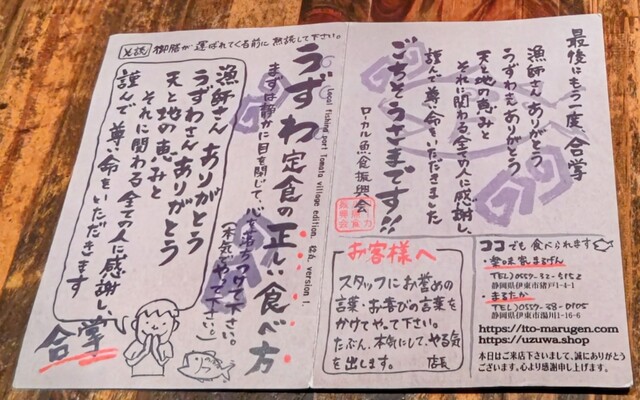 必読 御膳が運ばれてくる前に熟読して下さい。
うずわ定食の正しい食べ方
Local fishing port Tomato village edition.
version 1.
まずは静かに目を閉じて、心を落ちつけて下さい。
(本気でやって下さい。)
漁師さんありがとう
うずわさんありがとう
天と地の恵みと
それに関わる全ての人に感謝し、
謹んで尊い命をいただきます
合掌
最後にもう一度、合掌
漁師さんありがとう
うずわさんありがとう
天と地の恵みと
それに関わる全ての人に感謝し、
謹んで尊い命をいただきました
ごちそうさまです!!
ローカル魚食振興会
お客様へ
スタッフにお誉めの
言葉・お喜びの言葉を
かけてやって下さい。
たぶん、本気にして、やる気
を出します。
店長
ココでも食べられます
・笑味家まるげん
TEL)0557-32-5152
静岡県伊東市猪戸1-4-1
・まるたか
TEL)0557-38-0105
静岡県伊東市湯川1-16-6
https://ito-marugen.com
https://uzuwa.shop
本日はご来店下さいまして、誠にありがとう
ございます。心より感謝申し上げます。